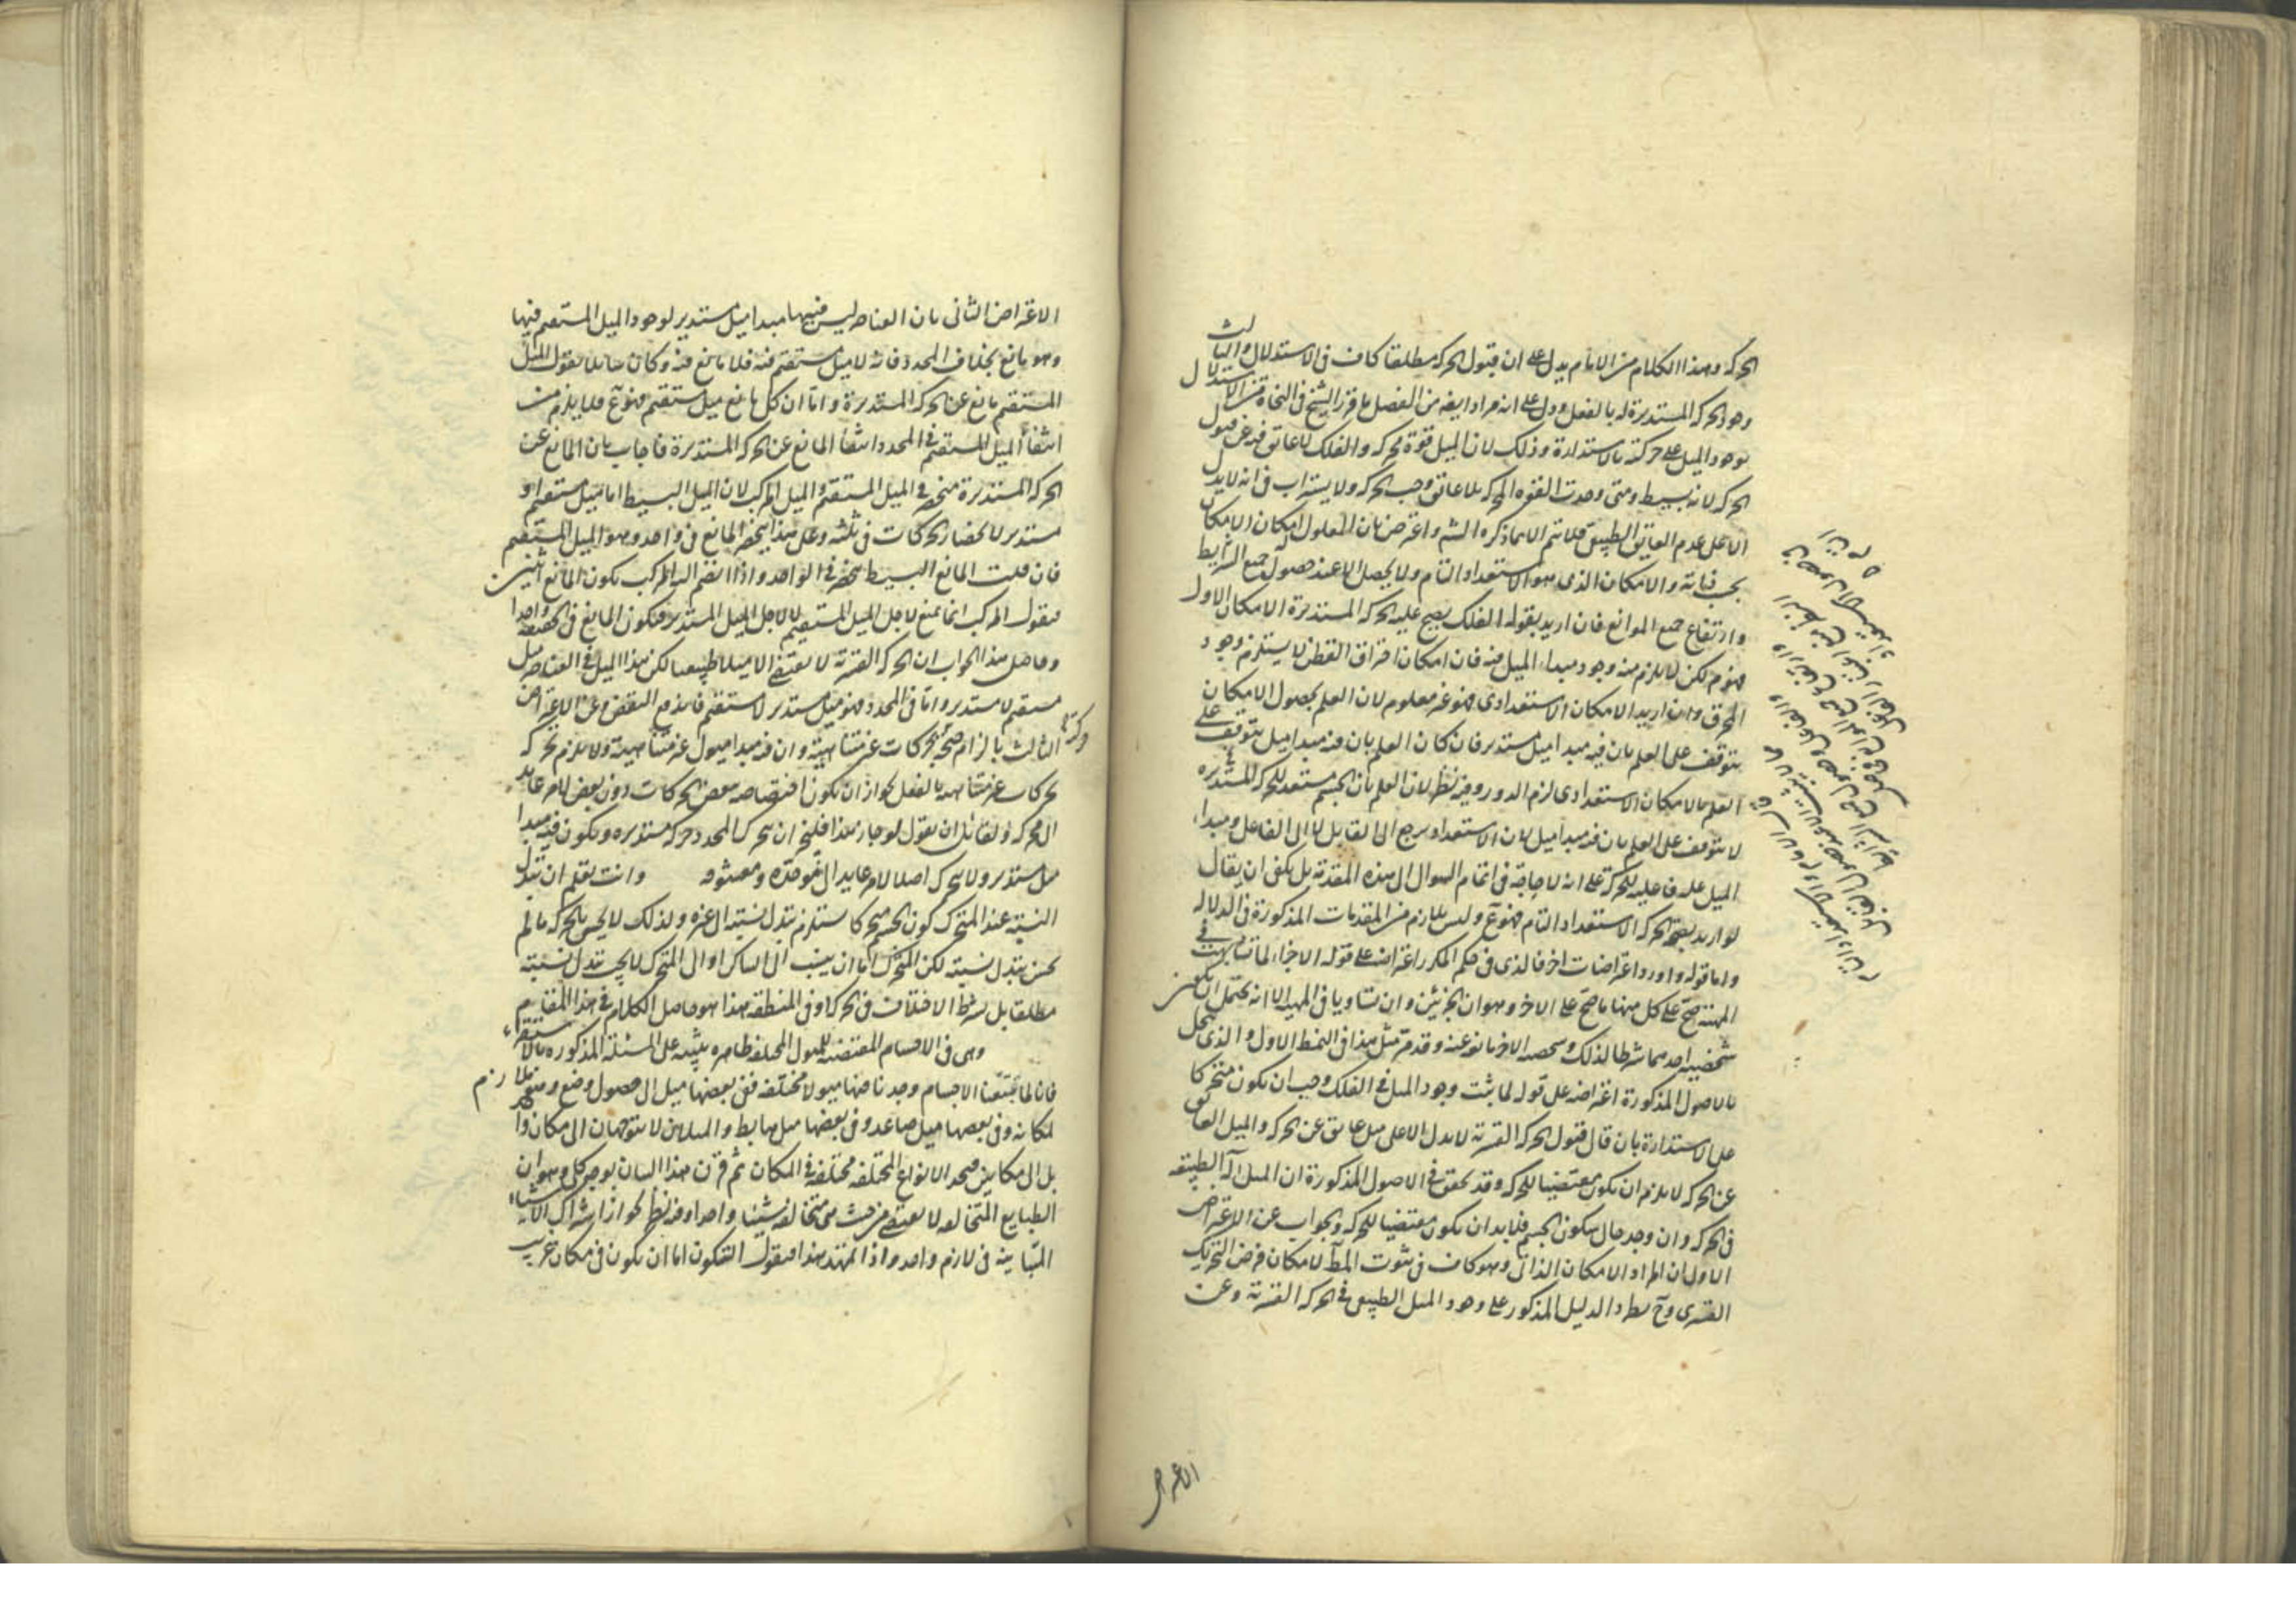 الحركة وهذا الكلام من الامام يدل على ان قبول الحركة مطلقا كاف فى الاستدلال والثالث
وهو الحركة المستديرة له بالفعل ودل على انه مراد ايضه من الفصل ما قرر الشيخ فى النجاة من الاستدلال
بوجود الميل على حركته بالاستدارة وذلك لان الميل قوة محركه والفلك لا عائق فيه عن قبول
الحركة لانه بسيط ومتى وجدت القوه المحركة بلا عائق وجب الحركة ولا يستراب فى انه لا يدل
الا على عدم العايق الطبيعى فلا يتم الا بما ذكره الشه واعترض بان المعلول امكان الامكان
يجب فيانه والامكان الذى هو الاستعداد التام ولا يحصل الا عند حصول جميع الشرايط
وارتفاع جميع الموانع فان اريد بقوله الفلك يصح عليه الحركة المستديرة الامكان الاول
فهو م لكن لا يلزم منه وجود مبداء الميل فيه فان امكان احتراق القطن لا يستلزم وجود
المحرق وان اريد الامكان الاستعدادى فهو غير معلوم لان العلم بحصول الامكان
يتوقف على العلم بان فيه مبدا ميل مستدير فان كان العلم بان فيه مبدا ميل يتوقف على
العلم بالامكان الاستعدادى لزم الدور وفيه نظر لان العلم بان الجسم مستعد للحركة المستديره
لا يتوقف على العلم بان فيه مبدا ميل لان الاستعداد يرجع الى القابل لا الى الفاعل ومبداء
الميل عله فاعليه للحركة على انه لا حاجة فى اتمام السوال الى هذه المقدمة بل يكفى ان يقال
لو اريد بصحة الحركة الاستعداد التام فهو مم وليس بلازم من المقدمات المذكورة فى الدلاله
واما قوله واورد اعتراضات اخر فالذى فى حكم المكرر اعتراضه على قوله الاجزاء لما تشابهت فى
المهية صح على كل منها ما صح على الاخر وهو ان الجزئين وان تساويا فى المهية الا انه يحتمل ان يكون
شخصية احدهما شرطا لذلك وشخصيه الاخر مانع عنه وقد مر مثل هذا فى النمط الاول والذى يحل
بالاصول المذكورة اعتراضه على قوله لما ثبت وجود الميل فى الفلك وجب ان يكون متحركا
على الاستدارة بان قال قبول الحركة القسرية لا يدل الا على ميل عايق عن الحركة والميل العايق
عن الحركة لا يلزم ان يكون مقتضيا للحركة وقد تحقق فى الاصول المذكورة ان الميل آلة الطبيعة
فى الحركة وان وجد حال سكون الجسم فلا بد ان يكون مقتضيا للحركة والجواب عن الاعتراض
الاول ان المراد الامكان الذاتى وهو كاف فى ثبوت المط لامكان فرض التحريك
القسرى وح يطرد الدليل المذكور على وجود الميل الطبيعى فى الحركة القسرية وعن
الاعتراض
الاعتراض الثانى بان العناصر ليس فيها مبدا ميل مستدير لوجود الميل المستقيم فيها
وهو مانع بخلاف المحدد فانه لا ميل مستقيم فيه فلا مانع فيه وكان سائلا يقول الميل
المستقيم مانع عن الحركة المستديرة واما ان كل مانع ميل مستقيم فهو مم فلا يلزم من
انتفاء الميل المستقيم فى المحدد انتفاء المانع عن الحركة المستديرة فاجاب بان المانع عن
الحركة المستديرة منحصر فى الميل المستقيم والميل المركب لان الميل البسيط اما ميل مستقيم او
مستدير لانحصار الحركات فى ثلثه وعلى هذا ينحصر المانع فى واحد وهو الميل المستقيم
فان قلت المانع البسيط منحصر فى الواحد واذا انضم اليه المركب يكون المانع اثنين
فنقول المركب انما يمنع لاجل الميل المستقيم لا لاجل الميل المستدير فيكون المانع فى الحقيقة واحدا
وحاصل هذا الجواب ان الحركة القسرية لا يقتضى الا ميلا طبيعيا لكن هذا الميل فى العناصر ميل
مستقيم لا مستدير واما فى المحدد فهو ميل مستدير لا مستقيم فاندفع النقض وعن الاعتراض
الثالث بالزام صحة الحركات غير متناهية وان فيه مبدا ميول غير متناهية ولا يلزم تحركه
وحركته
بحركات غير متناهية بالفعل لجواز ان يكون اختصاصه ببعض الحركات دون بعض لامر عايد
الى محركه ولقائل ان يقول لو جاز هذا فليجز ان تحرك المحدد حركة مستديره ويكون فيه مبدا
ميل مستدير ولا يتحرك اصلا لامر عايد الى محركه ومعشوقه وانت تعلم ان تبدل
النسبة عند المتحرك كون الجسم متحركا يستلزم تبدل نسبته الى غيره ولذلك لا يحس بالحركة ما لم
يحس بتبدل نسبته لكن المتحرك اما ان ينسب الى الساكن او الى المتحرك لا يجب تبدل نسبته
مطلقا بل بشرط الاختلاف فى الحركة او فى المنطقه هذا هو حاصل الكلام فى هذا المقام
وهى فى الاجسام المقتضية للميول المختلفه ظاهره ينبه على المسئلة المذكوره بالاستقراء
فانا لما تتبعنا الاجسام وجدنا فيها ميولا مختلفه ففى بعضها ميل الى حصول وضع وهو ملازم
لمكانه وفى بعضها ميل صاعد وفى بعضها ميل هابط والميلان لا يتوجهان الى مكان واحد
بل الى مكانين فيجد الانواع المختلفه مختلفة فى المكان ثم قرن هذا البيان بوجه كلى وهو ان
الطبايع المتخالفه لا يقتضى من حيث هى متخالفه شيئا واحدا وفيه نظر لجواز اشتراك الاشياء
المتباينة فى لازم واحد واذا تمهد هذا فنقول المتكون اما ان يكون فى مكان غريب